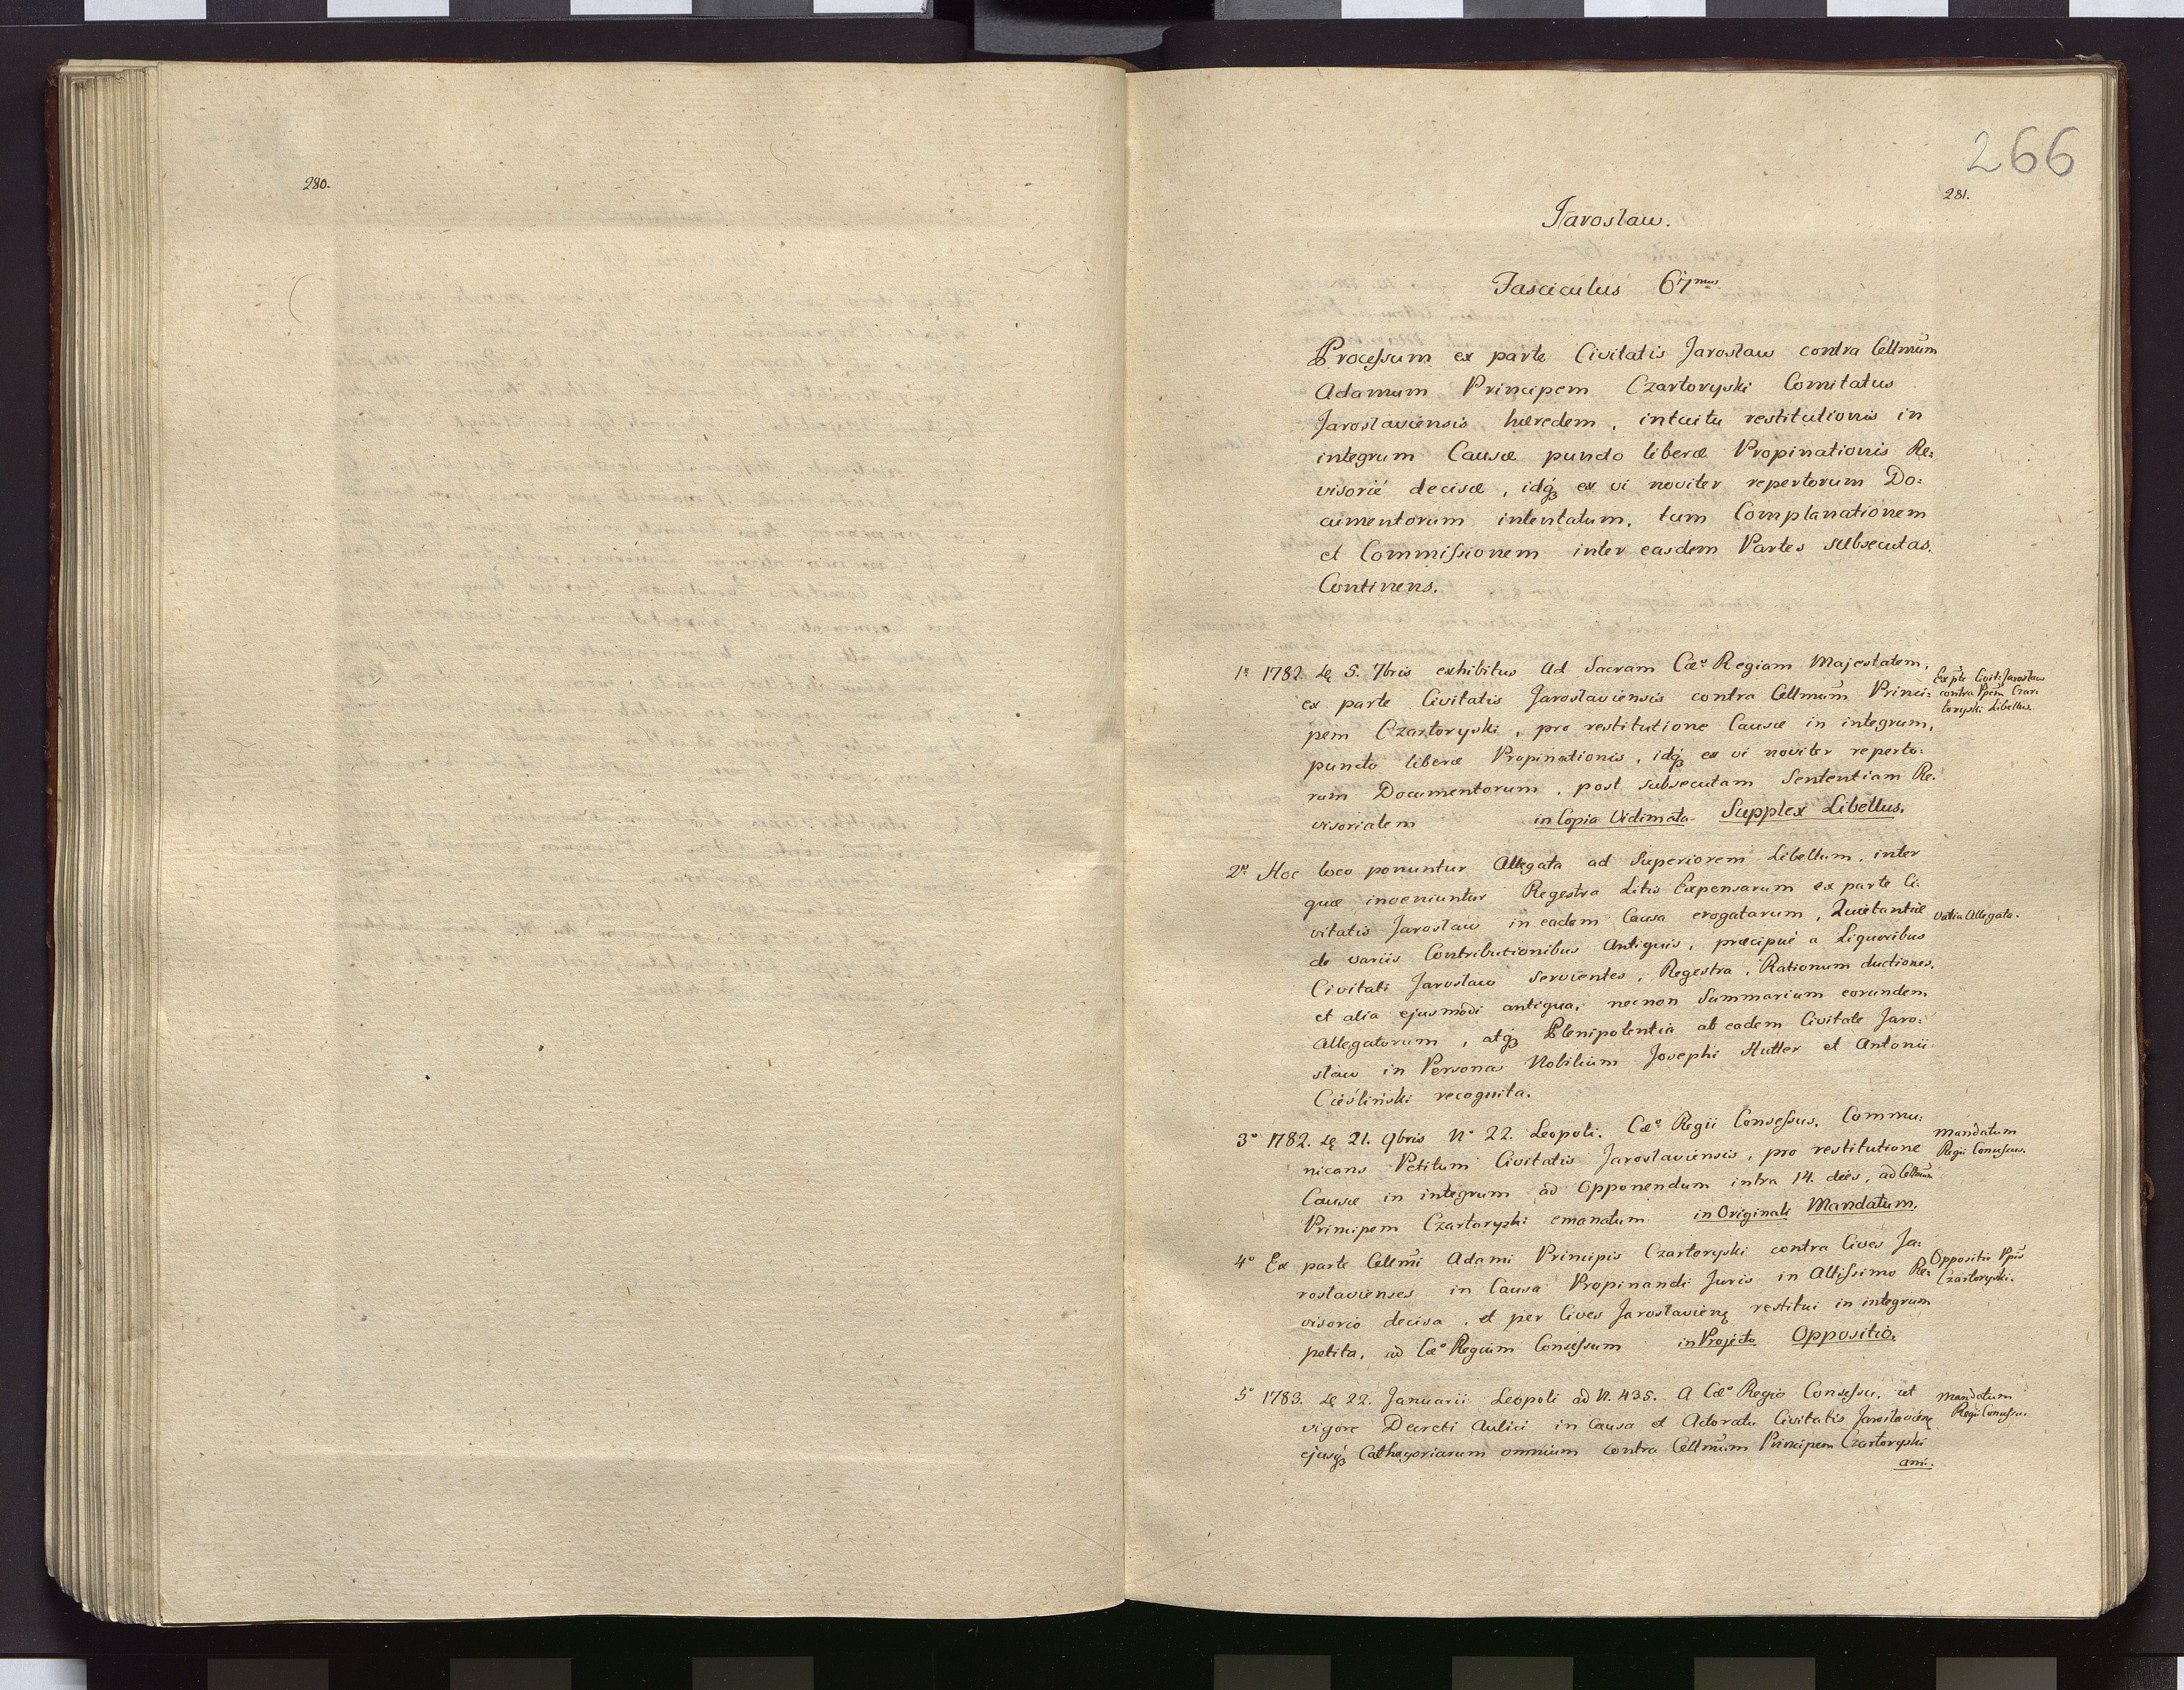 280.
266
281.
Jarosław.
Fasciculus 67mus
Processum ex parte Civitatis Jarosław contra Cellmūm
Adamum Principem Czartoryski Comitatus
Jarosłaviensis hæredem, intuitu restitutionis in
integrum Causæ puncto liberæ Propinationis Re:
visorié decisæ, idq́ꝫ ex vi noviter repertorum Do:
cumentorum intentatum, tum Complanationem
et Commiſsionem inter easdem Partes subsecutas.
Continens.
1º 1782. dę 5. 7bris exhibitus ad Sacram Cæº Regiam Majestatem,
ex parte Civitatis Jarosłaviensis contra Cellmūm Princi:
pem Czartoryski, pro restitutione Causæ in integrum,
puncto liberæ Propinationis, idq́ꝫ ex vi noviter reperto:
rum Documentorum, post subsecutam Sententiam Re:
visorialem in Copia Vidimata Supplex Libellus.
Ex pte Civit: Jarosław
contra Ppēm Czar:
toryski Libellus.
2º Hoc loco ponuntur Allegata ad Superiorem Libellum, inter
quæ inveniuntur Regestra Litis Expensarum ex parte Ci:
vitatis Jarosław in eadem Causa erogatarum, Quietantiæ
de variis Contributionibus Antiquis, præcipué a Liquoribus
Civitati Jarosław servientes, Regestra, Rationum ductiones,
et alia ejusmodi antiqua, necnon Summarium eorundem
Allegatorum, atq́ꝫ Plenipotentia ab eadem Civitate Jaro:
sław in Personas Nobilium Josephi Hutter et Antonii
Cieśliński recognita.
Varia Allegata.
3º 1782. dę 21. 9bris Nº 22. Leopoli. Cæº Regii Conseſsus, Commu:
nicans Petitum Civitatis Jarosłaviensis, pro restitutione
Causæ in integrum ad Opponendum intra 14. dies, ad Cellmūm
Principem Czartoryski emanatum in Originali Mandatum.
Mandatum
Regii Conseſsus.
4º Ex parte Cellmī Adami Principis Czartoryski contra Cives Ja:
rosłavienses in Causa Propinandi Juris in Altiſsimo Re:
visorio decisa, et per Cives Jarosłavienę restitui in integrum
petita, ad Cæº Regium Conseſsum in Projecto Oppositio.
Oppositio Ppīs
Czartoryski.
5º 1783. dę 22. Januarii Leopoli ad N. 435. A Cæº Regio Conseſsu, ut
vigore Decreti Aulici in Causa et Actoratu Civitatis Jarosłavienę
ejusq́ꝫ Cathegoriarum omnium contra Cellmūm Principem Czartoryski
ami:
Mandatum
Regii Conseſsu.